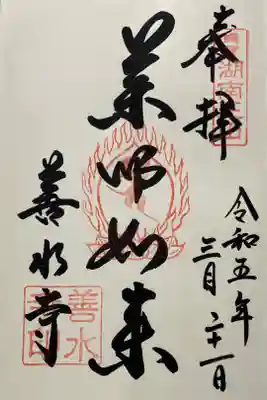 奉拝
令和五年
三月二十一日
薬師如来
善水寺
善水
寺印